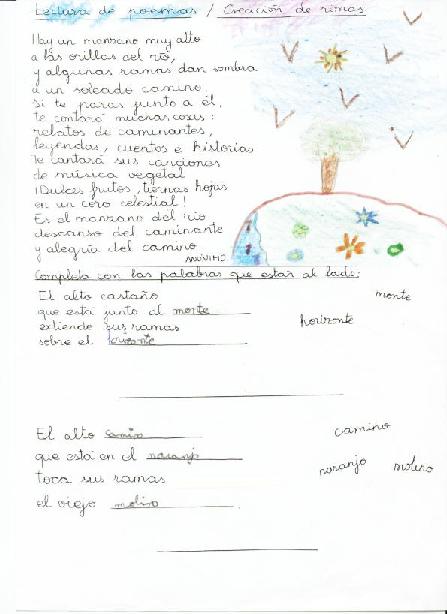 Lectura de poemas / Creación de rimas
Hay un manzano muy alto
a las orillas del río,
y algunas ramas dan sombra
a un soleado camino.
Si te paras junto a él,
te contará muchas cosas:
relatos de caminantes,
leyendas, cuentos e historias
te cantará sus canciones
de música vegetal
¡Dulces frutos, tiernas hojas
en un coro celestial!
Es el manzano del río
descanso del caminante
y alegría del camino
Completa con las palabras que están al lado:
El alto castaño
monte
que está junto al monte
horizonte
extiende sus ramas
sobre el
El alto camino
camino
que está en el naranjo
naranjo molino
toca sus ramas
el viejo molino